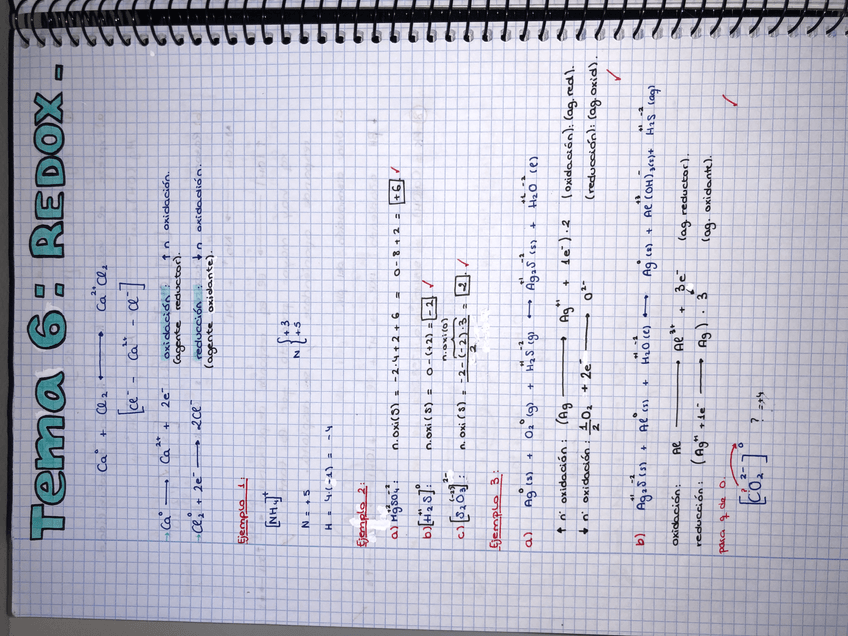 Tema 6: REDOX -
Ca⁰ + Cl₂ ⟷ Ca²⁺Cl₂
[Cl⁻ - Ca²⁺ - Cl⁻]
→ Ca⁰ ⟶ Ca²⁺ + 2e⁻ oxidación: ↑ n. oxidación.
(agente reductor).
→ Cl₂⁰ + 2e⁻ ⟶ 2Cl⁻ reducción: ↓ n. oxidadión.
(agente oxidante).
Ejemplo 1:
[NH₄]⁺
N = +5 N { +3 +5
H = 4·(-1) = -4
Ejemplo 2:
a) HgSO₄: n.oxi(S) = -2·4+2+6 = 0-8+2 = +6 ✓
b) [H₂S]⁰: n.oxi(S) = 0-(+2) = -2 ✓
n.oxi(O)
c) [S₂O₃]²⁻: n.oxi(S) = -2-(-2)·3 / 2 = -2 ✓
Ejemplo 3:
a) Ag⁰(s) + O₂⁰(g) + H₂⁺¹S⁻²(g) ⟷ Ag₂⁺¹S⁻²(s) + H₂⁺¹O⁻²(l)
↑ nº oxidación: (Ag ⟶ Ag⁺¹ + 1e⁻)·2 (oxidación): (ag.red).
↓ nº oxidación: 1/2 O₂ + 2e⁻ ⟶ O²⁻ (reducción): (ag.oxid). ✓
b) Ag₂⁺¹S⁻²(s) + Al⁰(s) + H₂⁺¹O⁻²(l) ⟷ Ag⁰(s) + Al⁺³(OH)⁻₃(s) + H₂⁺¹S⁻²(aq)
oxidación: Al ⟶ Al³⁺ + 3e⁻ (ag. reductor).
reducción: (Ag⁺¹ + 1e⁻ ⟶ Ag)·3 (ag. oxidante). ✓
para q dé 0.
[C?O₂²⁻]⁰ ? = +4